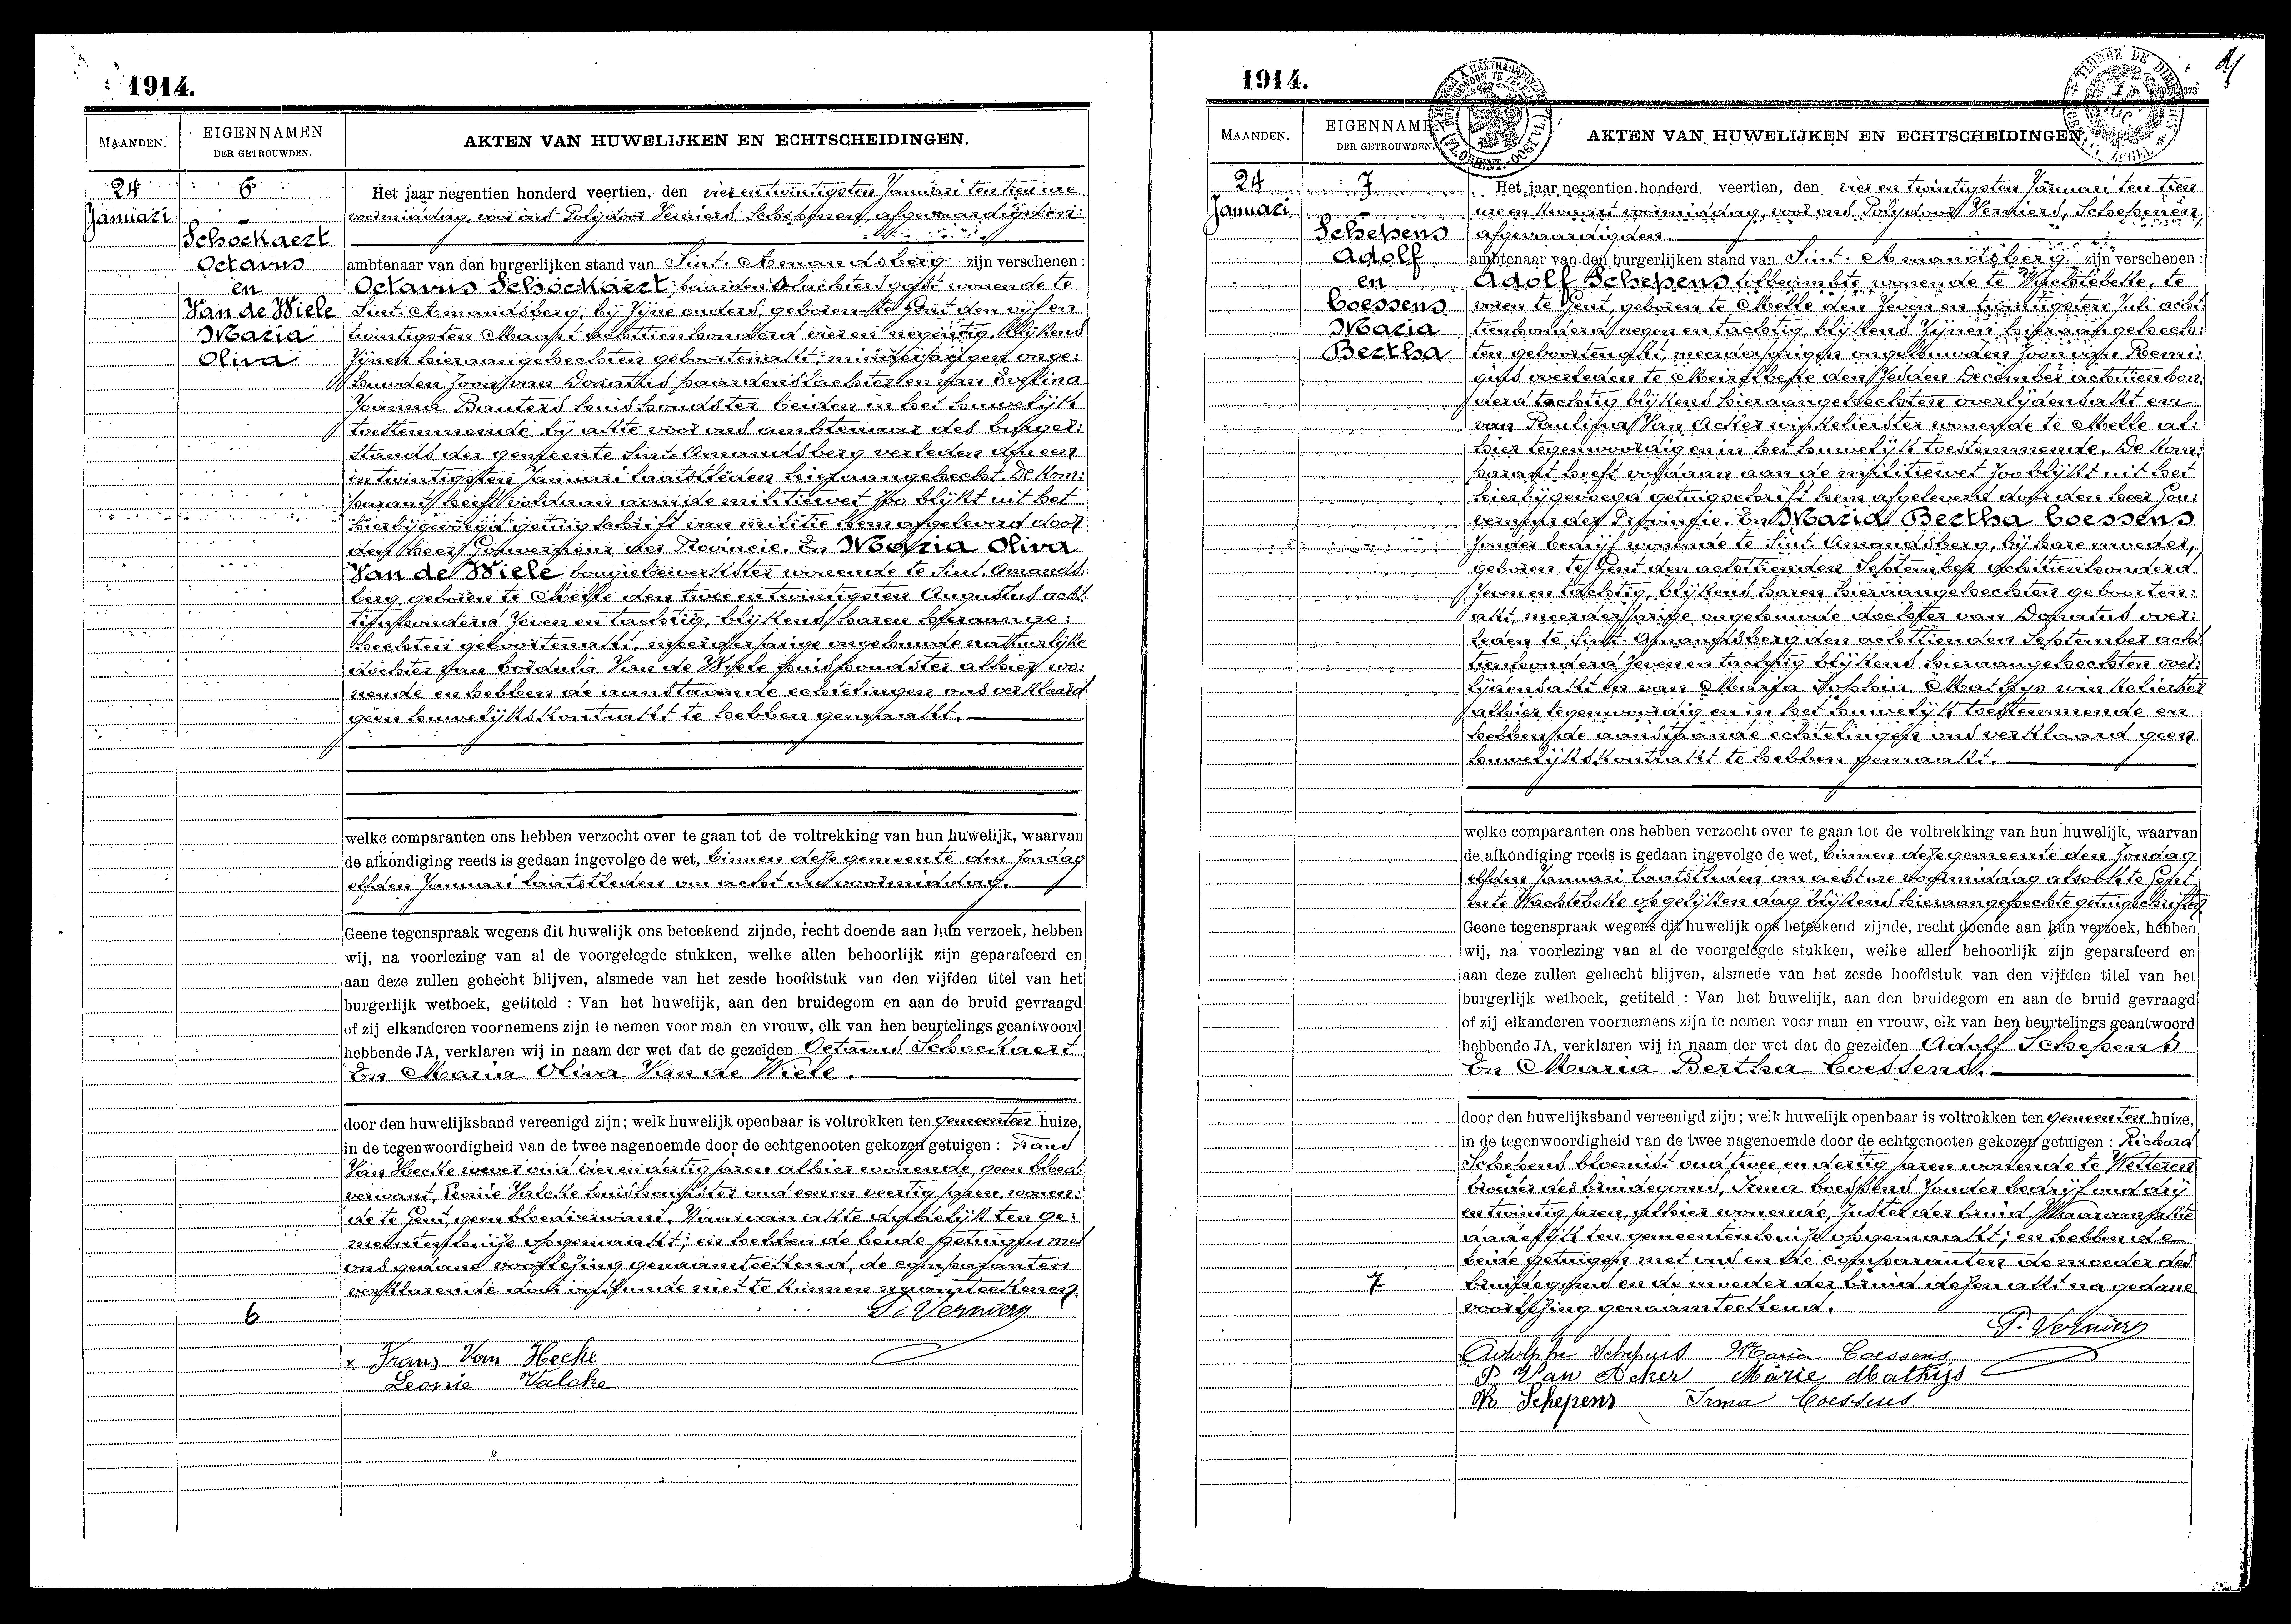 1914.
MAANDEN.
EIGENNAMEN
DER GETROUWDEN.
AKTEN VAN HUWELIJKEN EN ECHTSCHEIDINGEN.
24
Januari
6
Schockaert
Octavus
en
Van de Wiele
Maria
Oliva
Het jaar negentien honderd veertien, den vier en twintigsten Januari ten tien ure
voormiddag, voor ons Polydoor Verniers Schepenen, afgevaardigden
ambtenaar van den burgerlijken stand van Sint. Amandsberg zijn verschenen :
Octavus Schockaert, paardenslachtersgast wonende te
Sint. Amandsberg, bij zijne ouders, geboren te Gent den vijf en
twintigsten Maart achttienhonderd vier en negentig, blijkens
zijnen hieraangehechten geboortenakt, minderjarigen onge:
huwden zoon van Donatus paardenslachter en van
Joanna Bauters huishoudster beiden in het huwelijk
toestemmende bij akte voor ons ambtenaar des burger:
stands der gemeente Sint. Amandsberg verleden den een
en twintigsten Januari laatstleden hieraangehecht. De kom:
parant heeft voldaan aan de militiewet zoo blijkt uit het
hierbijgevoegd getuigschrift van militie hem afgeleverd door
den heer Gouverneur der Provincie. En Maria Oliva
Van de Wiele bougiebewerkster wonende te Sint. Amands:
berg, geboren te Melle den twee en twintigsten Augustus acht
tienhonderd zeven en tachtig, blijkens haren hieraange:
hechten geboortenakt, meerderjarige ongehuwde natuurlijke
dochter van Cordula Van de Wiele huishoudster alhier wo:
nende en hebben de aanstaande echtelingen ons verklaard
geen huwelijkskontrakt te hebben gemaakt.
welke comparanten ons hebben verzocht over te gaan tot de voltrekking van hun huwelijk, waarvan
de afkondiging reeds is gedaan ingevolge de wet, binnen deze gemeente den zondag
elfden Januari laatstleden om acht ure voormiddag.
Geene tegenspraak wegens dit huwelijk ons beteekend zijnde, recht doende aan hun verzoek, hebben
wij, na voorlezing van al de voorgelegde stukken, welke allen behoorlijk zijn geparafeerd en
aan deze zullen gehecht blijven, alsmede van het zesde hoofdstuk van den vijfden titel van het
burgerlijk wetboek, getiteld : Van het huwelijk, aan den bruidegom en aan de bruid gevraagd
of zij elkanderen voornemens zijn te nemen voor man en vrouw, elk van hen beurtelings geantwoord
hebbende JA, verklaren wij in naam der wet dat de gezeiden Octavus Schockaert
En Maria Oliva Van de Wiele.
door den huwelijksband vereenigd zijn; welk huwelijk openbaar is voltrokken ten gemeenten huize,
in de tegenwoordigheid van de twee nagenoemde door de echtgenooten gekozen getuigen : Frans
Van Hecke wever oud vier en dertig jaren alhier wonende, geen bloed:
verwant, Leonie Valcke huishoudster oud eenen veertig jaren, wonen:
de te Gent, geen bloedverwant. Waarvan akte dadelijk ten ge:
meentenhuize opgemaakt; en hebben de beide getuigen met
ons gedane voorlezing genaamteekend, de comparanten
verklarende door onkunde niet te kunnen naamteekenen.
6
P. Verniers
x Frans Van Hecke
Leonie Valcke
1914.
MAANDEN.
EIGENNAMEN
DER GETROUWDEN.
AKTEN VAN HUWELIJKEN EN ECHTSCHEIDINGEN.
24
Januari
7
Schepens
Adolf
en
Coessens
Maria
Bertha
Het jaar negentien honderd veertien, den vier en twintigsten Januari ten tien
ure en kwart voormiddag, voor ons Polydoor Verniers, Schepenen,
afgevaardigden.
ambtenaar van den burgerlijken stand van Sint. Amandsberg zijn verschenen :
Adolf Schepens tolbeambte wonende te Wachtebeke, te
voren te Gent, geboren te Melle den zeven en twintigsten Juli ach:
tienhonderd negen en tachtig, blijkens zijnen hieraangehech:
ten geboortenakt, meerderjarigen ongehuwden zoon van Remi:
gius overleden te den zesden December achttienhon:
derd tachtig blijkens hieraangehechten overlijdensakt en
van Paulina Van Acker winkelierster wonende te Melle al:
hier tegenwoordig en in het huwelijk toestemmende. De kom:
parant heeft voldaan aan de militiewet zoo blijkt uit het
hierbijgevoegd getuigschrift hem afgeleverd door den heer Gou:
verneur der Provincie. En Maria Bertha Coessens
zonder bedrijf wonende te Sint. Amandsberg, bij hare moeder,
geboren te Gent den achttienden September achttienhonderd
zeven en tachtig, blijkens haren hieraangehechten geboorten:
akt, meerderjarige ongehuwde dochter van Donatus over:
leden te Sint. Amandsberg den achttienden September ach:
tienhonderd zeven en tachtig blijkens hieraangehechten over:
lijdensakt en van Maria Sophia Mathys winkelierster
alhier tegenwoordig en in het huwelijk toestemmende en
hebben de aanstaande echtelingen ons verklaard geen
huwelijkskontrakt te hebben gemaakt.
welke comparanten ons hebben verzocht over te gaan tot de voltrekking van hun huwelijk, waarvan
de afkondiging reeds is gedaan ingevolge de wet, binnen deze gemeente den zondag
elfden Januari laatstleden om acht ure voormiddag alsook te Gent
en te Wachtebeke op gelijken dag blijkens hieraangehechte getuigschriften
Geene tegenspraak wegens dit huwelijk ons beteekend zijnde, recht doende aan hun verzoek, hebben
wij, na voorlezing van al de voorgelegde stukken, welke allen behoorlijk zijn geparafeerd en
aan deze zullen gehecht blijven, alsmede van het zesde hoofdstuk van den vijfden titel van het
burgerlijk wetboek, getiteld : Van het huwelijk, aan den bruidegom en aan de bruid gevraagd
of zij elkanderen voornemens zijn te nemen voor man en vrouw, elk van hen beurtelings geantwoord
hebbende JA, verklaren wij in naam der wet dat de gezeiden Adolf Schepens
En Maria Bertha Coessens.
door den huwelijksband vereenigd zijn; welk huwelijk openbaar is voltrokken ten gemeenten huize,
in de tegenwoordigheid van de twee nagenoemde door de echtgenooten gekozen getuigen : Richard
Schepens bloemist oud twee en dertig jaren wonende te Wetteren
broeder des bruidegoms, Irma Coessens zonder bedrijf oud dry
en twintig jaren, alhier wonende, zuster der bruid. Waarvan akte
dadelijk ten gemeentenhuize opgemaakt; en hebben de
beide getuigen met ons en de comparanten de moeder des
bruidegoms en de moeder der bruid dezen akt na gedane
voorlezing genaamteekend.
7
P. Verniers
Adolphe Schepens Maria Coessens
P Van Acker Marie Mathijs
R Schepens Irma Coessens